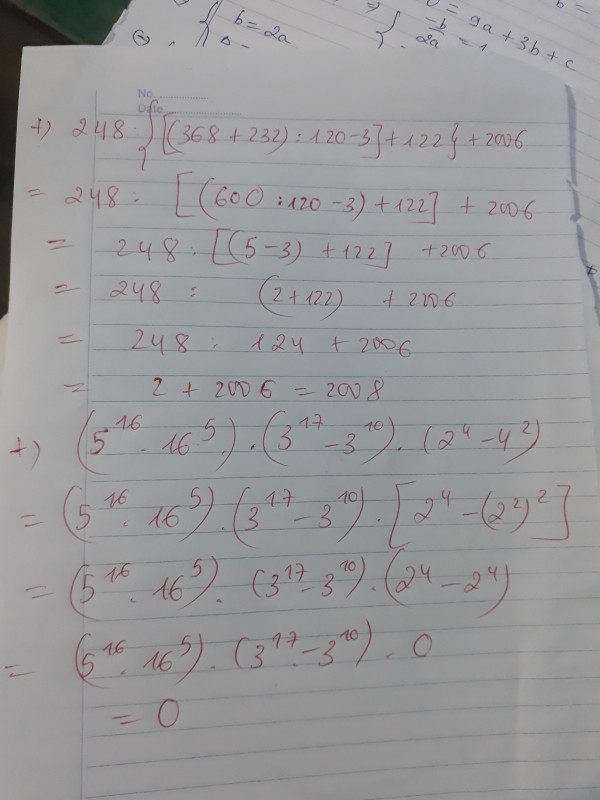 b = 2a
-b/2a = 1
= 9a + 3b + c
b =
No.
Date
+) 248 : {[(368 + 232) : 120 - 3] + 122} + 2006
= 248 : [(600 : 120 - 3) + 122] + 2006
= 248 : [(5 - 3) + 122] + 2006
= 248 : (2 + 122) + 2006
= 248 : 124 + 2006
= 2 + 2006 = 2008
+) (5^16 . 16^5) . (3^17 - 3^10) . (2^4 - 4^2)
= (5^16 . 16^5) . (3^17 - 3^10) . [2^4 - (2^2)^2]
= (5^16 . 16^5) . (3^17 - 3^10) . (2^4 - 2^4)
= (5^16 . 16^5) . (3^17 - 3^10) . 0
= 0